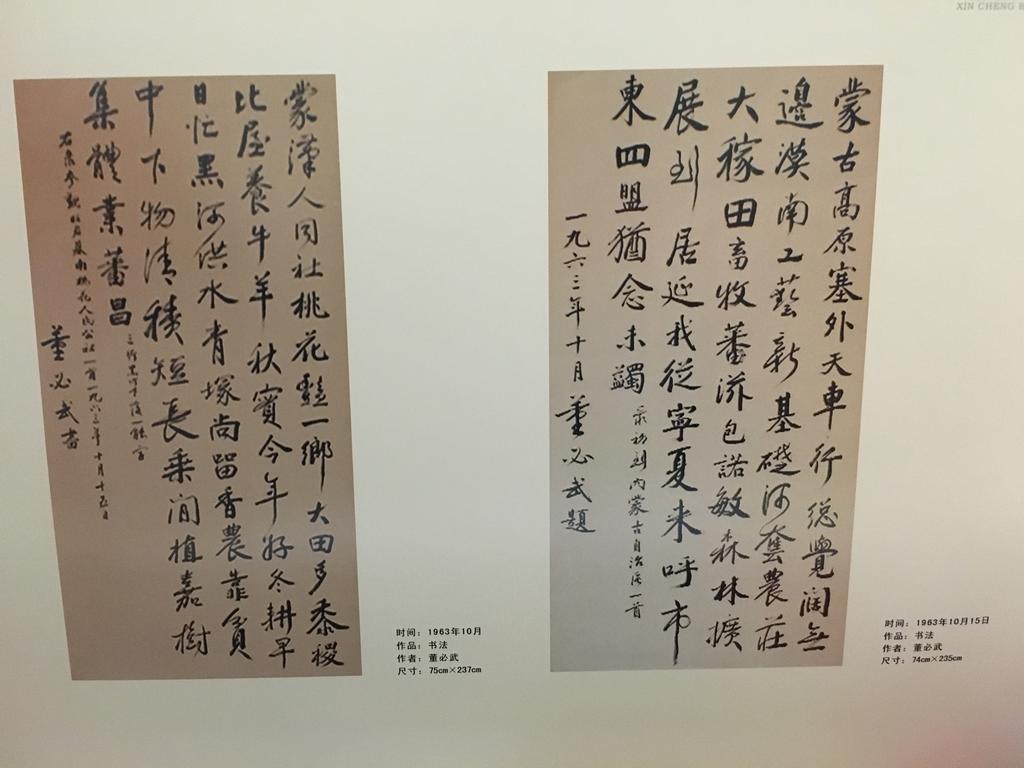 XIN CHENG
蒙漢人同社桃花豔一鄉大田多黍稷
比屋養牛羊秋實今年好冬耕早
日忙黑河供水青塚尚留香農靠貧
中下物清積短長乘闲植嘉樹
集體業蕃昌
人民公社一首一九六三年十月十五日
董必武書
时间:1963年10月
作品:书法
作者:董必武
尺寸:75cm×237cm
蒙古高原塞外天車行總覺闊無
邊漠南工藝新基礎河套農莊
大稼田畜牧蕃滋包諾敏森林擴
展到居延我從寧夏来呼市
東四盟猶念未躅
最初到内蒙古自治区一首
一九六三年十月董必武題
时间:1963年10月15日
作品:书法
作者:董必武
尺寸:74cm×235cm